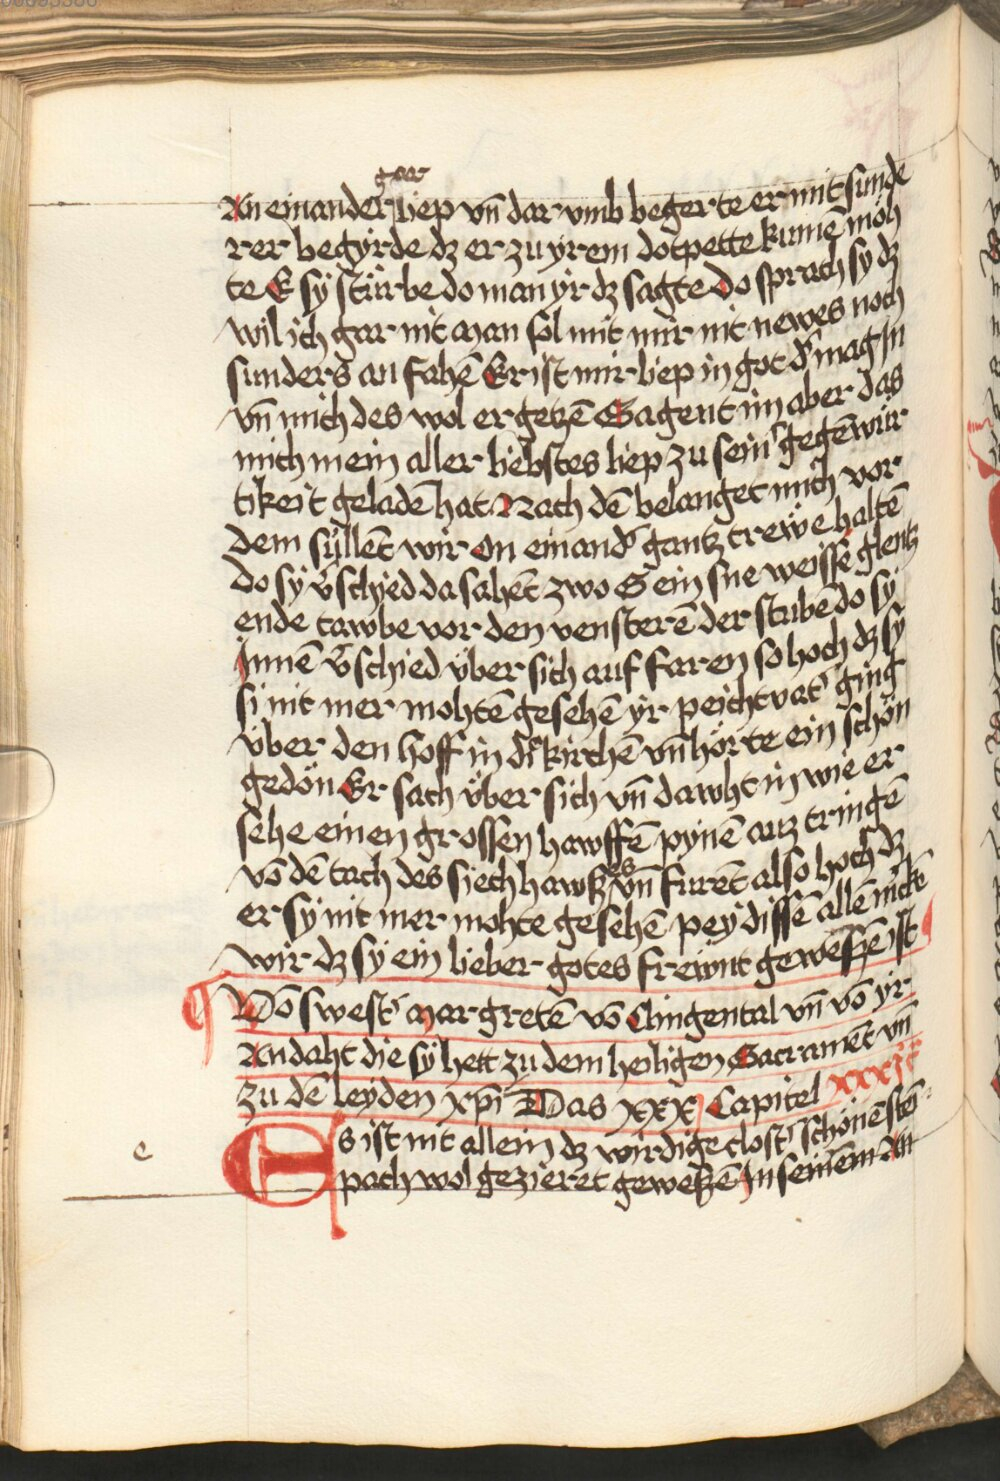 gar
An einander liep vn̄ dar vmb begerte er mit sunde
rer begyrde dz er zu yrem dotpette kumē moh
te E sy stürbe do man yr dz sagte Do sprach sy dz
wil ich gar nit Man sol mit mir nit newes noch
sunders an fahē Er ist mir liep in got d̕ mag In
vn̄ mich des wol ergetzē Sagent im aber das
mich mein aller liebstes liep zu sein̕ gegēwür
tikeit geladē hat Nach dē belanget mich vor
dem süllēt wir An einand̕ gantz trewe haltē
do sy v̕schied da sahēt zwo S ein sne weisse glentz
ende tawbe vor den vensterē der stubē do sy
Innē v̕schied über sich auf faren so hoch dz sy
si nit mer mohtē gesehē yr peichtvat̕ ging
über den hoff in di kirchē vn̄ hörte ein schön
gedön Er sach über sich vn̄ dawht in wie er
sehe einen grossen hawffē pynē auz tringē
vō dē tach des siechhawsz vn̄ furēt also hoch dz
es
er sy nit mer mohte gesehē pey dissē allē mck̄
wir dz sy ein lieber gotes frewnt geweszē ist
Vō swest̕ Margretē vō Clingental vn̄ vō yr
Andaht die sy hett zu dem heiligen Sacramēt vn̄
zu dē leyden xp̄i Das xxx Capitel xxxii
e
Es ist nit allein dz wirdige clost̕ Schönēstē
pach wol gezieret geweszē In seinēm An